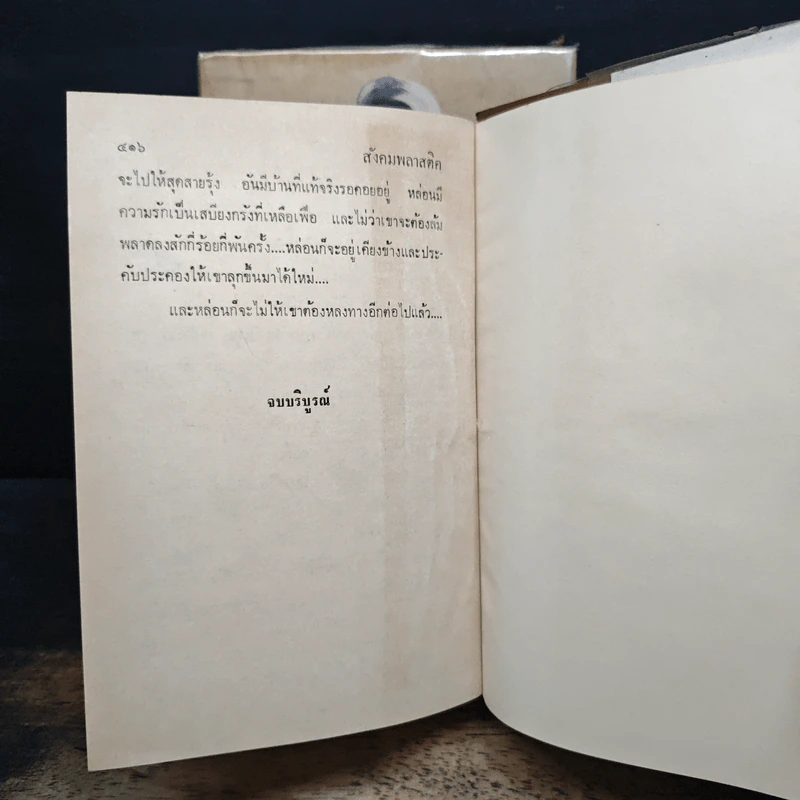 ๔๑๖ สังคมพลาสติค
จะไปให้สุดสายรุ้ง อันมีบ้านที่แท้จริงรอคอยอยู่ หล่อนมี
ความรักเป็นเสบียงกรังที่เหลือเฟือ และไม่ว่าเขาจะต้องล้ม
พลาดลงสักกี่ร้อยกี่พันครั้ง....หล่อนก็จะอยู่เคียงข้างและประ-
คับประคองให้เขาลุกขึ้นมาได้ใหม่....
และหล่อนก็จะไม่ให้เขาต้องหลงทางอีกต่อไปแล้ว....
จบบริบูรณ์